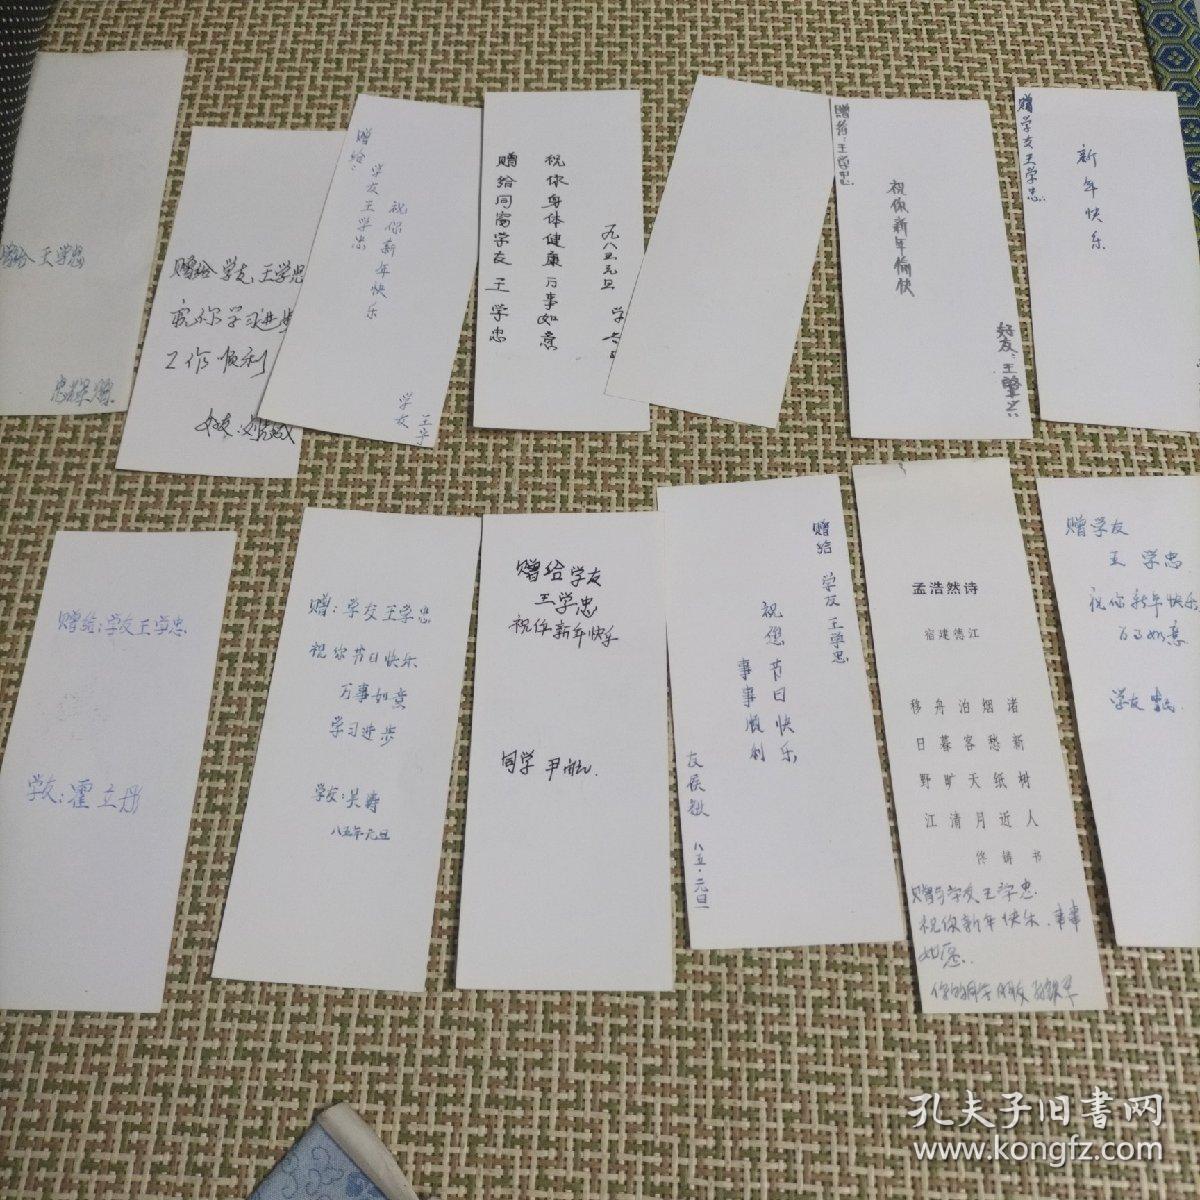 赠给 王学忠
赠给学友王学忠
祝你学习进步
工作顺利
赠给 学友王学忠
祝你新年快乐
学友 王
赠给同窗学友 王学忠
祝你身体健康 万事如意
九八五元旦 学
赠给:王学忠
祝你新年愉快
好友:王
赠学友王学忠
新年快乐
赠给:学友王学忠
学友:霍立丹
赠:学友王学忠
祝你节日快乐
万事如意
学习进步
学友:吴涛
八五年元旦
赠给学友
王学忠
祝你新年快乐
同学 尹
赠给 学友王学忠
祝您节日快乐
事事顺利
友 侯
八五·元旦
孟浩然诗
宿建德江
移舟泊烟渚
日暮客愁新
野旷天纸树
江清月近人
佟铸书
赠与学友王学忠.
祝你新年快乐.事事
如愿.
你的同学
赠学友
王学忠
祝你新年快乐
万事如意
学友
孔夫子旧书网
www.kongfz.com